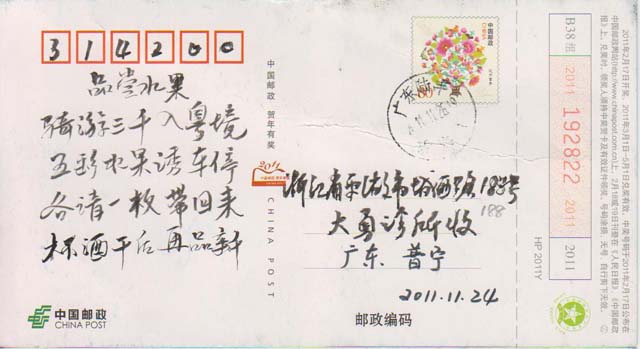 314200
品尝水果
骑游三千入粤境
五彩水果诱车停
各请一枚带回来
杯酒干后再品新
中国邮政
CHINA POST
中国邮政 贺年有奖
2011
CHINA POST
中国邮政
CHINA
80
2011.11.24
浙江省平湖市城西路188号
188
大勇诊所收
广东 普宁
2011.11.24
邮政编码
HP 2011Y
B38 组
2011
192822
2011
2011